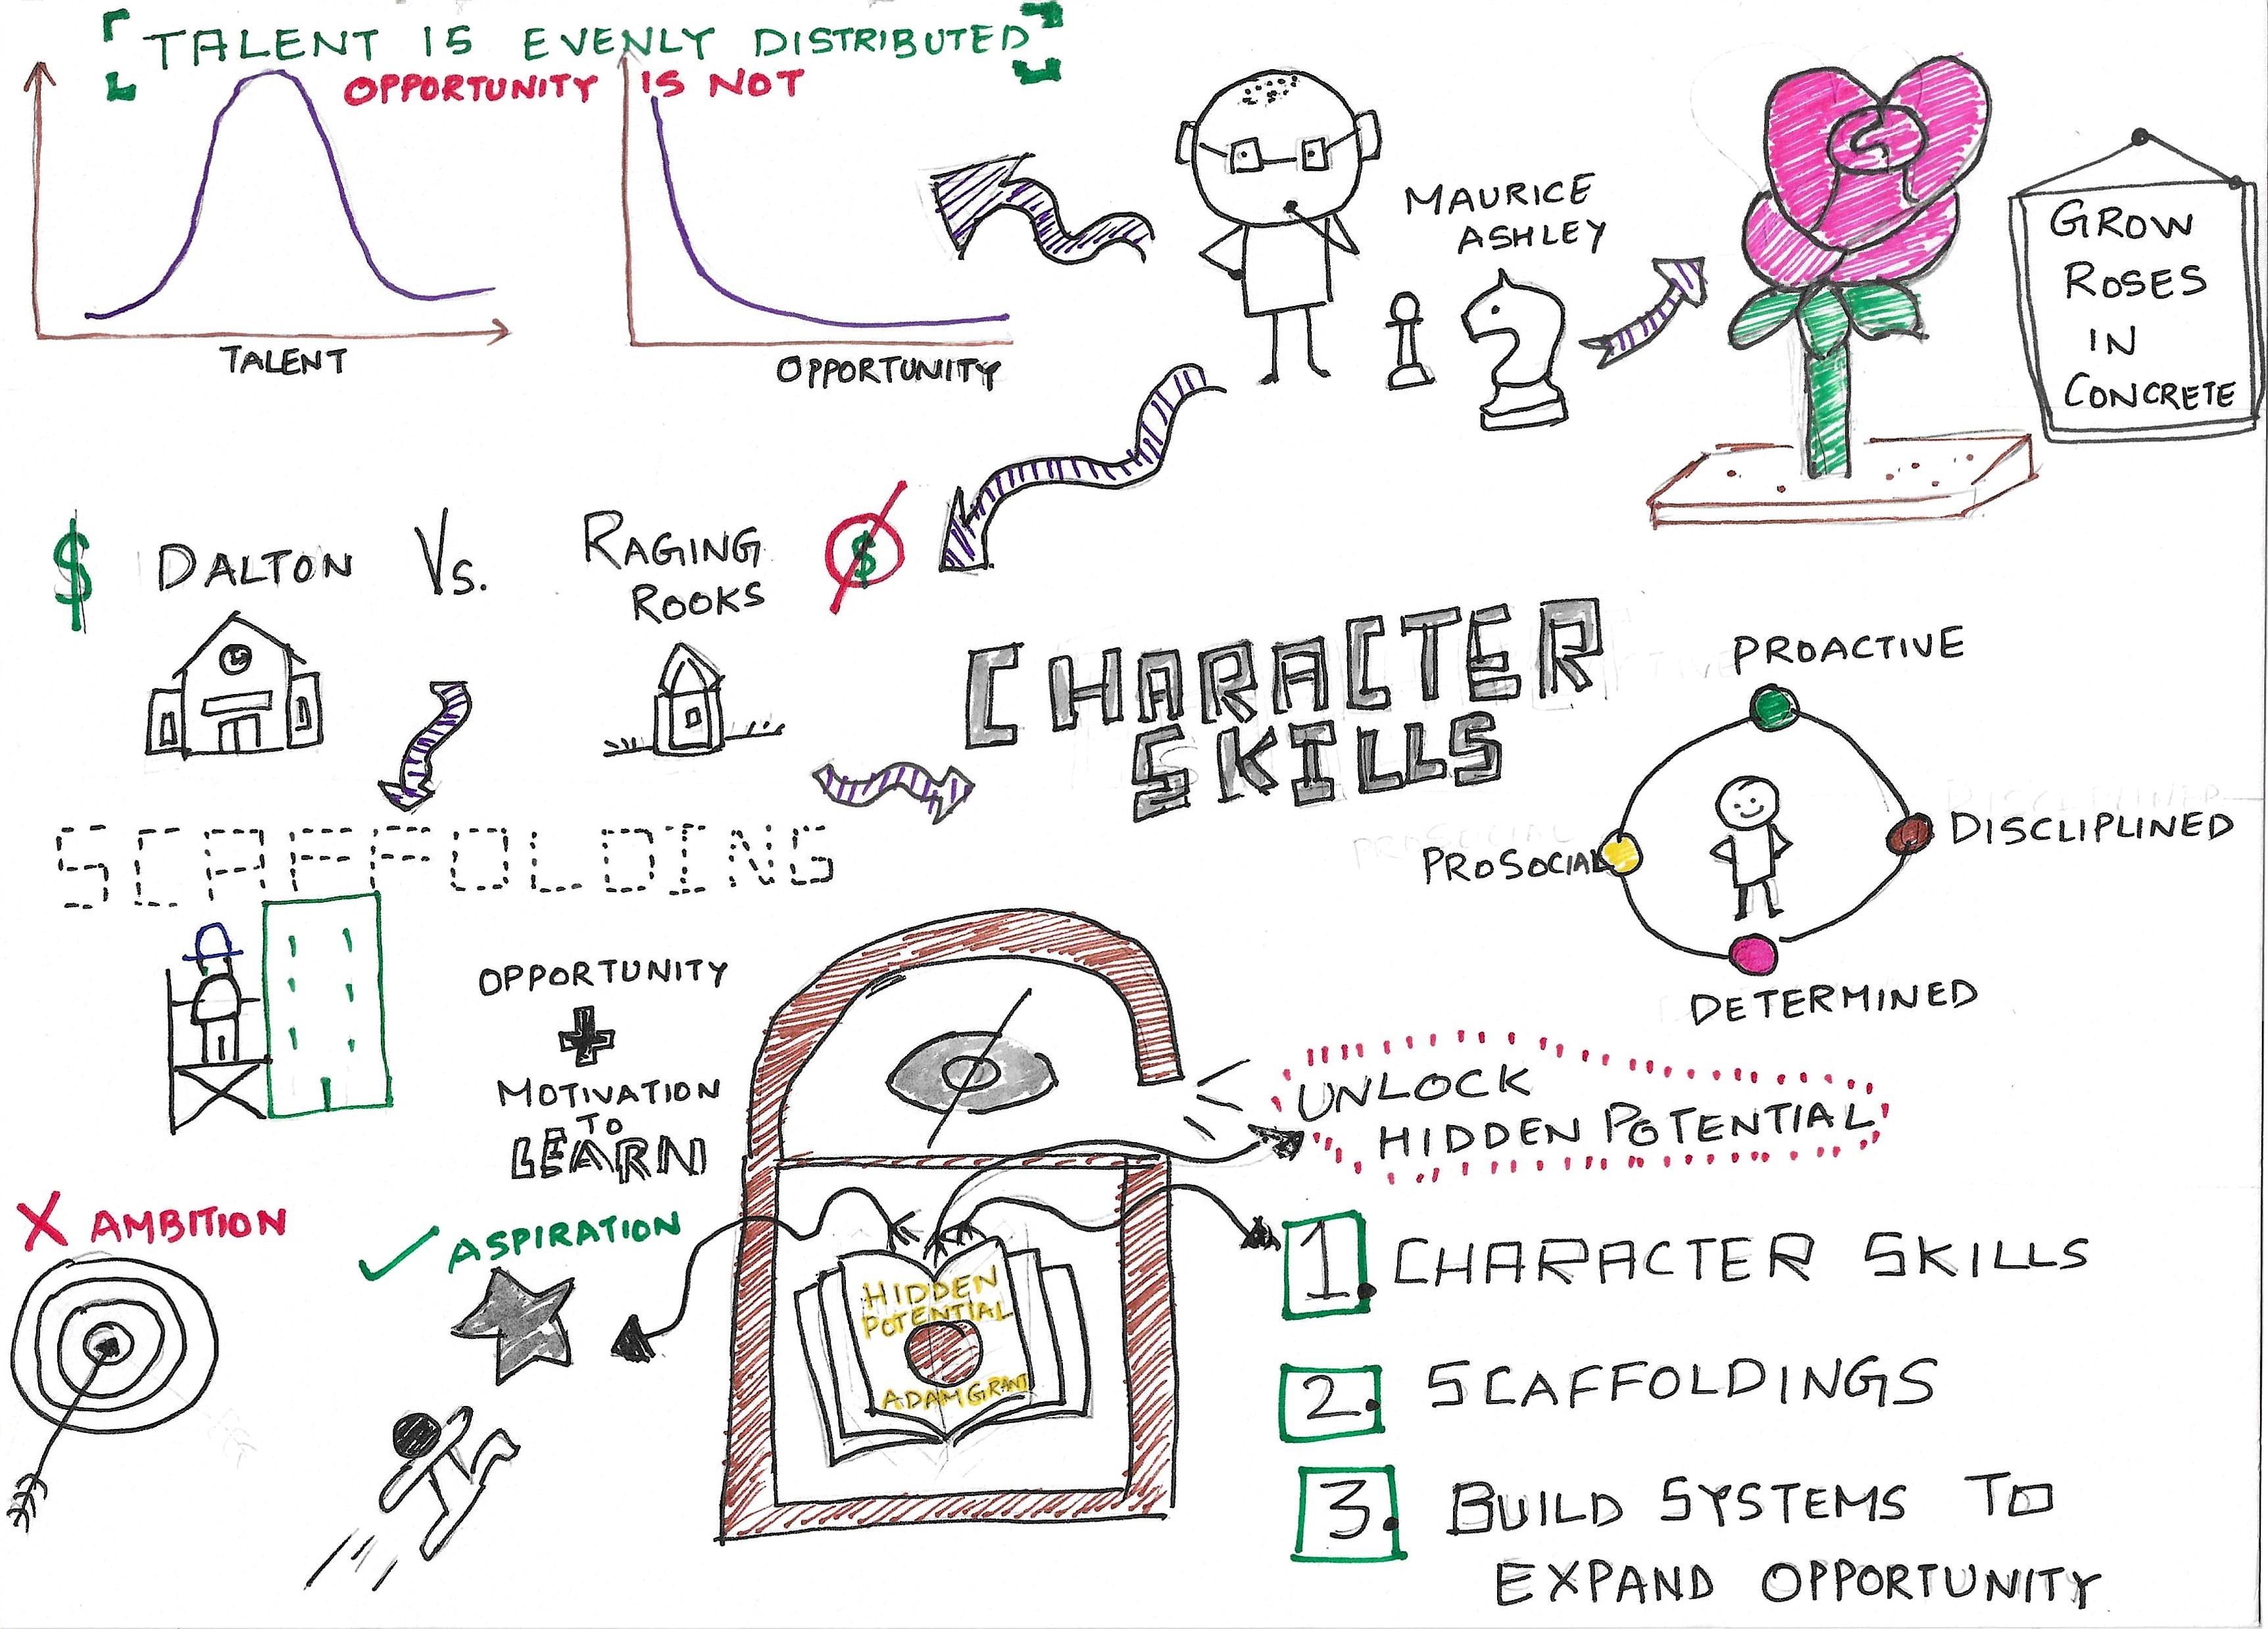 TALENT IS EVENLY DISTRIBUTED
OPPORTUNITY IS NOT
TALENT
OPPORTUNITY
MAURICE
ASHLEY
GROW
ROSES
IN
CONCRETE
$ DALTON Vs. RAGING
ROOKS $
CHARACTER
SKILLS
PROACTIVE
DISCLIPLINED
PROSOCIAL
DETERMINED
SCAFFOLDING
OPPORTUNITY
+
MOTIVATION
TO
LEARN
UNLOCK
HIDDEN POTENTIAL
X AMBITION
ASPIRATION
HIDDEN
POTENTIAL
ADAM GRANT
1. CHARACTER SKILLS
2. SCAFFOLDINGS
3. BUILD SYSTEMS TO
EXPAND OPPORTUNITY